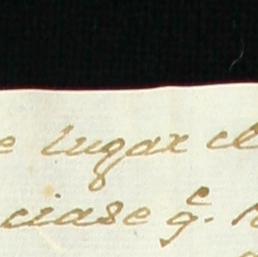 e lugar el
ciase q.e